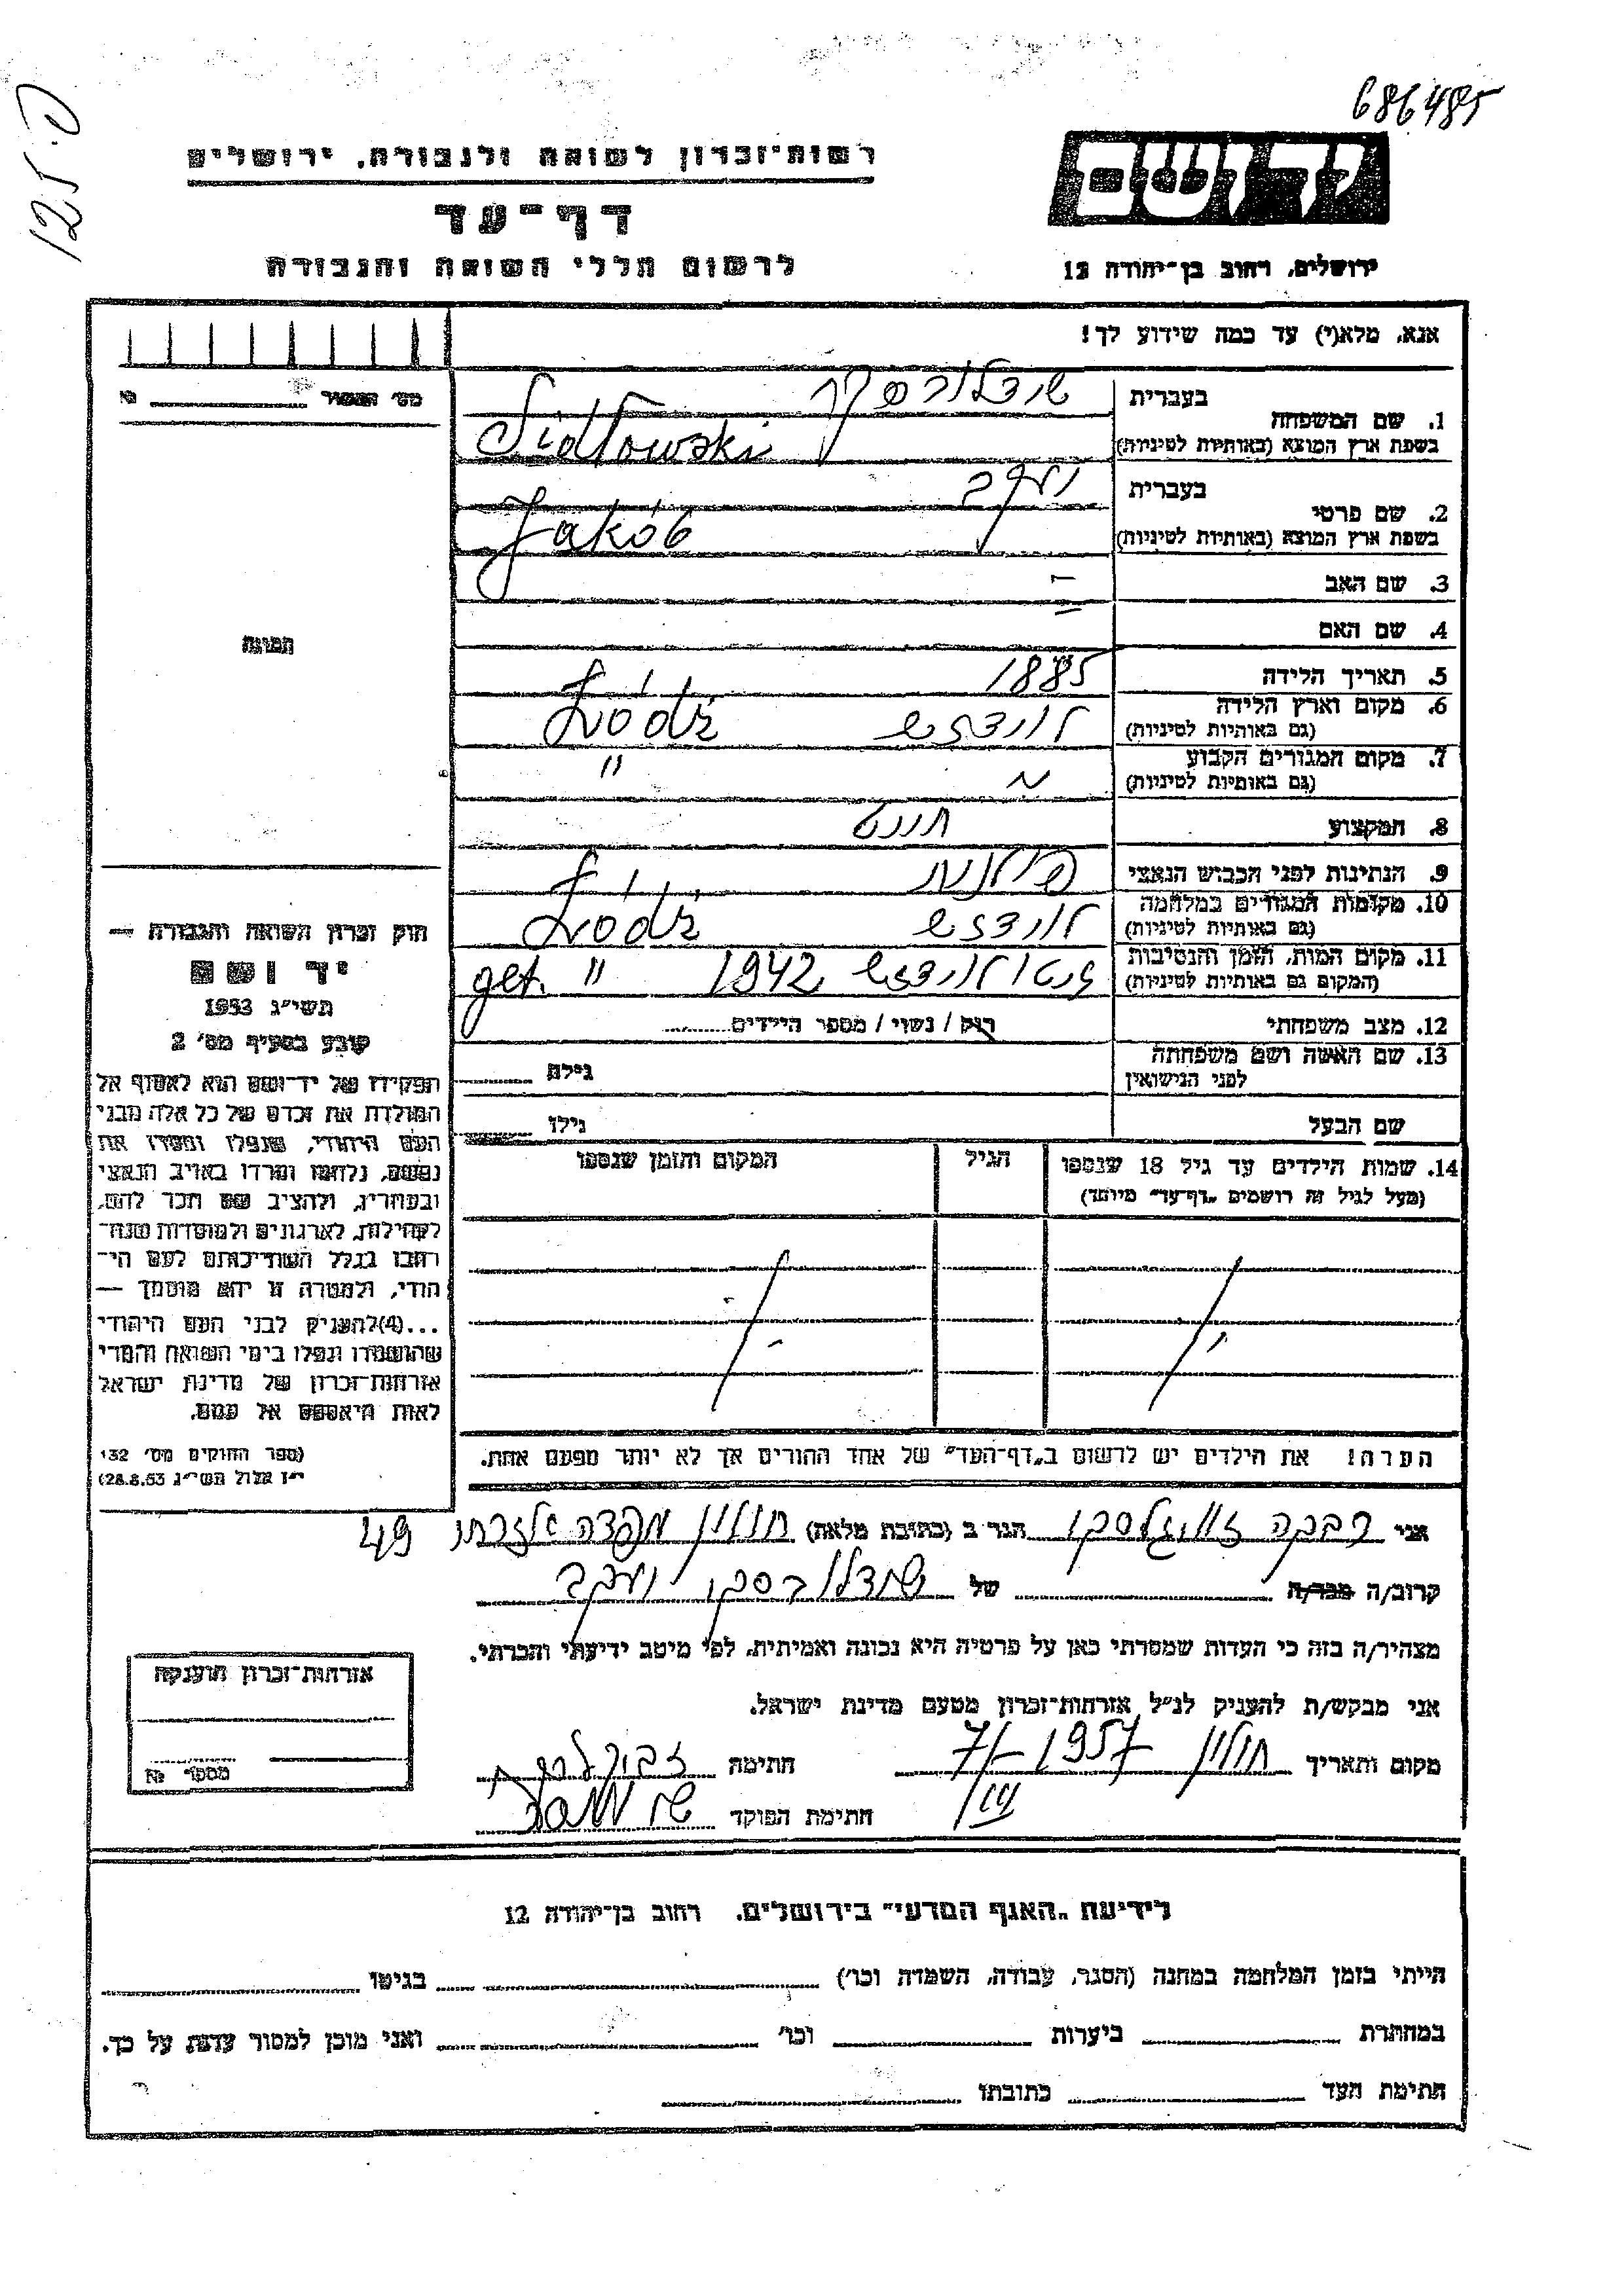 686485
125 ס.
יד ושם
רשות־זכרון לשואה ולגבורה, ירושלים
דף־עד
לרשום חללי השואה והגבורה
ירושלים, רחוב בן־יהודה 12
אנא, מלא(י) עד כמה שידוע לך!
מס׳ הממשיך №
1. שם המשפחה
בעברית שידלובסקי
בשפת ארץ המוצא (באותיות לטיניות) Sidłowski
2. שם פרטי
בעברית יעקב
בשפת ארץ המוצא (באותיות לטיניות) Jakób
3. שם האב —
4. שם האם
5. תאריך הלידה 1885
6. מקום וארץ הלידה
(גם באותיות לטיניות) לודז׳ Łódź
7. מקום המגורים הקבוע
(גם באותיות לטיניות) " "
8. המקצוע
9. הנתינות לפני הכבוש הנאצי פולנית
10. מקומות המגורים במלחמה
(גם באותיות לטיניות) Łódź
11. מקום המות, הזמן והנסיבות
(המקום גם באותיות לטיניות) 1942 get. "
12. מצב משפחתי רוק / נשוי / מספר הילדים
13. שם האשה ושם משפחתה
לפני הנישואין גילה
שם הבעל גילו
14. שמות הילדים עד גיל 18 שנספו
(מעל לגיל זה רושמים „דף־עד" מיוחד)
הגיל
המקום והזמן שנספו
הערה! את הילדים יש לרשום ב„דף־העד" של אחד ההורים אך לא יותר מפעם אחת.
תמונה
חוק זכרון השואה והגבורה —
יד ושם
תשי״ג 1953
קובע בסעיף מס׳ 2
תפקידו של יד־ושם הוא לאסוף אל
המולדת את זכרם של כל אלה מבני
העם היהודי, שנפלו ומסרו את
נפשם, נלחמו ומרדו באויב הנאצי
ובעוזריו, ולהציב שם וזכר להם,
לקהילות, לארגונים ולמוסדות שנח־
רבו בגלל השתייכותם לעם הי־
הודי, ולמטרה זו יהא מוסמך —
...(4) להעניק לבני העם היהודי
שהושמדו ונפלו בימי השואה והמרי
אזרחות־זכרון של מדינת ישראל
לאות היאספם אל עמם.
(ספר החוקים מס׳ 132
י״ז אלול תשי״ג 28.8.53)
אני רבקה הגר ב (כתובת מלאה) חולון 49
קרוב/ה מכר/ה של שידלובסקי יעקב
מצהיר/ה בזה כי העדות שמסרתי כאן על פרטיה היא נכונה ואמיתית, לפי מיטב ידיעתי והכרתי.
אני מבקש/ת להעניק לנ״ל אזרחות־זכרון מטעם מדינת ישראל.
מקום ותאריך חולון 7/ 1957 חתימה
VII חתימת הפוקד
אזרחות־זכרון הוענקה
מספר №
לידיעת „האגף המדעי" בירושלים, רחוב בן־יהודה 12
הייתי בזמן המלחמה במחנה (הסגר, עבודה, השמדה וכו׳) בגיטו
במחתרת ביערות וכו׳ ואני מוכן למסור עדות על כך.
חתימת העד כתובתו